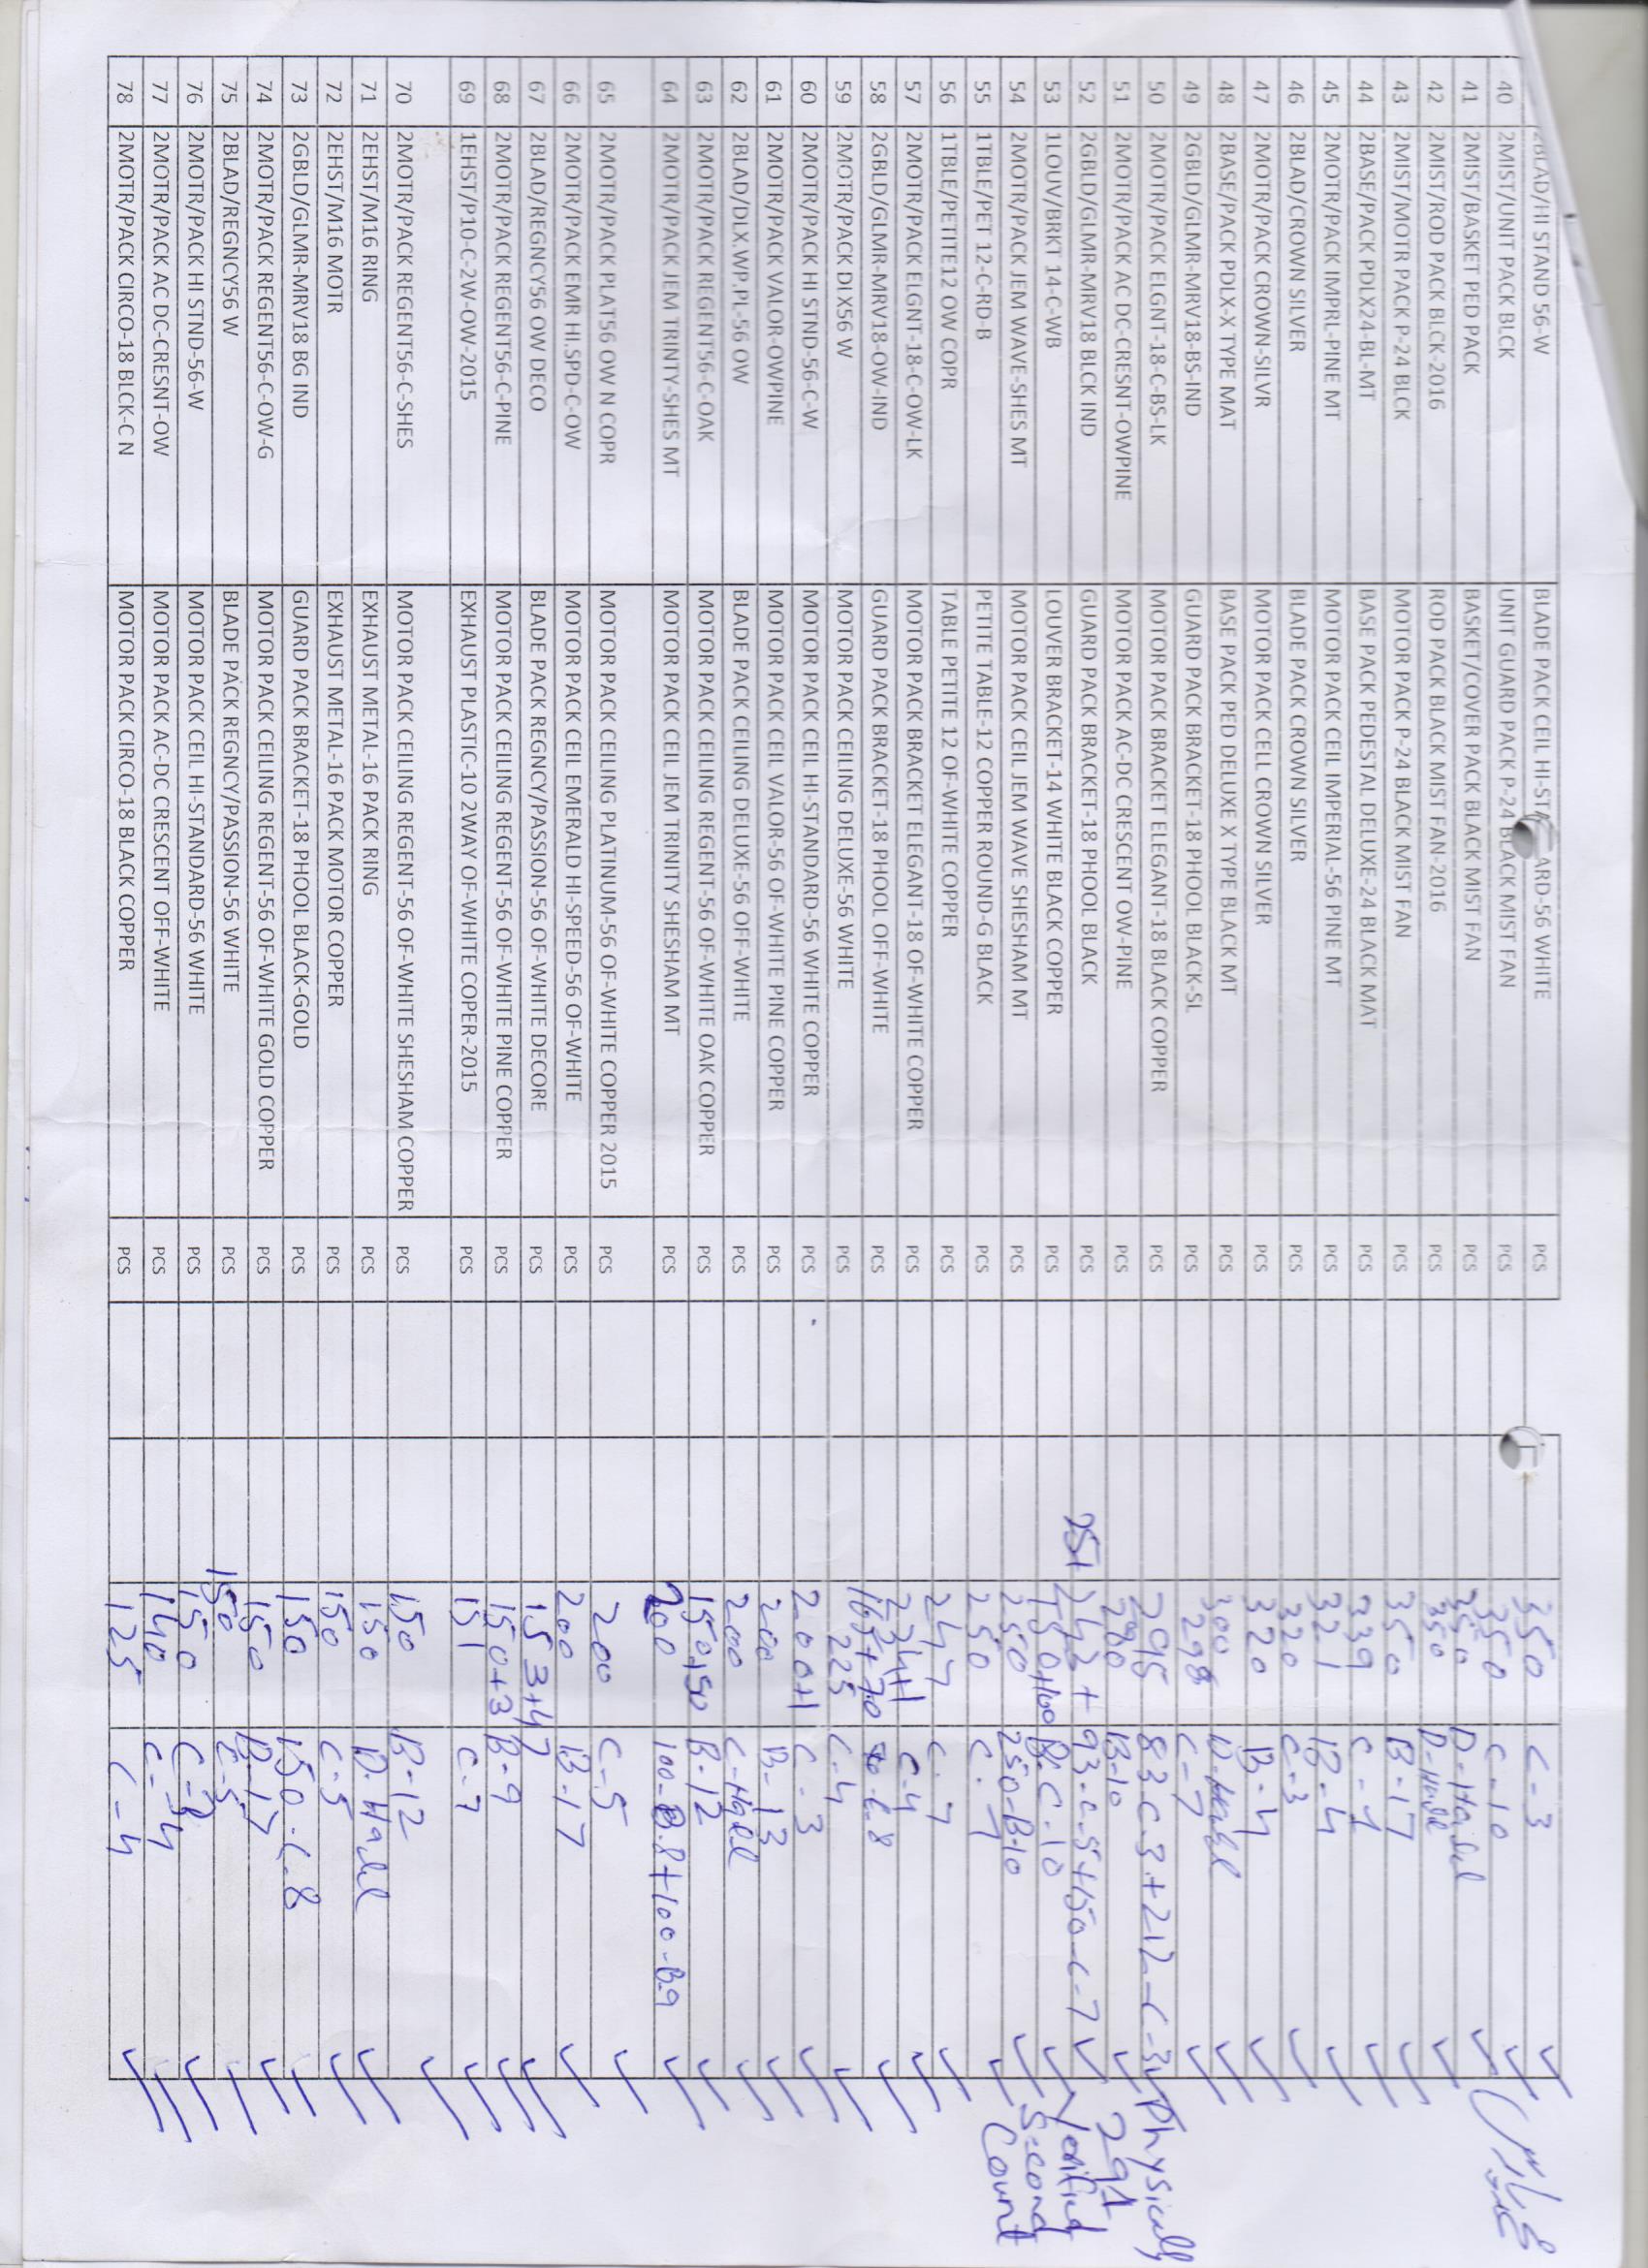 2BLAD/HI STAND 56-W BLADE PACK CEIL HI-STA ARD-56 WHITE PCS 350 C-3
40 2MIST/UNIT PACK BLCK UNIT GUARD PACK P-24 BLACK MIST FAN PCS 350 C-10
41 2MIST/BASKET PED PACK BASKET/COVER PACK BLACK MIST FAN PCS 350
42 2MIST/ROD PACK BLCK-2016 ROD PACK BLACK MIST FAN-2016 PCS 350
43 2MIST/MOTR PACK P-24 BLCK MOTOR PACK P-24 BLACK MIST FAN PCS 350 B-17
44 2BASE/PACK PDLX24-BL-MT BASE PACK PEDESTAL DELUXE-24 BLACK MAT PCS 339
45 2MOTR/PACK IMPRL-PINE MT MOTOR PACK CEIL IMPERIAL-56 PINE MT PCS 321 B-4
46 2BLAD/CROWN SILVER BLADE PACK CROWN SILVER PCS 320 C-3
47 2MOTR/PACK CROWN-SILVR MOTOR PACK CELL CROWN SILVER PCS 320 B-4
48 2BASE/PACK PDLX-X TYPE MAT BASE PACK PED DELUXE X TYPE BLACK MT PCS 300
49 2GBLD/GLMR-MRV18-BS-IND GUARD PACK BRACKET-18 PHOOL BLACK-SL PCS 298 C-7
50 2MOTR/PACK ELGNT-18-C-BS-LK MOTOR PACK BRACKET ELEGANT-18 BLACK COPPER PCS 295 83-C-3+212-C-3 Physically
51 2MOTR/PACK AC DC-CRESNT-OWPINE MOTOR PACK AC-DC CRESCENT OW-PINE PCS 280 B-10 291
52 2GBLD/GLMR-MRV18 BLCK IND GUARD PACK BRACKET-18 PHOOL BLACK PCS 251 243+93-C-5+150-C-7 Verified
53 1LOUV/BRKT 14-C-WB LOUVER BRACKET-14 WHITE BLACK COPPER PCS 150+100 C-10 Second
54 2MOTR/PACK JEM WAVE-SHES MT MOTOR PACK CEIL JEM WAVE SHESHAM MT PCS 250 250-B-10 Count
55 1TBLE/PET 12-C-RD-B PETITE TABLE-12 COPPER ROUND-G BLACK PCS 250 C-7
56 1TBLE/PETITE12 OW COPR TABLE PETITE 12 OF-WHITE COPPER PCS 247 C-7
57 2MOTR/PACK ELGNT-18-C-OW-LK MOTOR PACK BRACKET ELEGANT-18 OF-WHITE COPPER PCS 234+1 C-4
58 2GBLD/GLMR-MRV18-OW-IND GUARD PACK BRACKET-18 PHOOL OFF-WHITE PCS 163+70 C-8
59 2MOTR/PACK DLX56 W MOTOR PACK CEILING DELUXE-56 WHITE PCS 225 C-4
60 2MOTR/PACK HI STND-56-C-W MOTOR PACK CEIL HI-STANDARD-56 WHITE COPPER PCS 200+1 C-3
61 2MOTR/PACK VALOR-OWPINE MOTOR PACK CEIL VALOR-56 OF-WHITE PINE COPPER PCS 200 B-13
62 2BLAD/DLX.WP.PL-56 OW BLADE PACK CEILING DELUXE-56 OFF-WHITE PCS 200
63 2MOTR/PACK REGENT56-C-OAK MOTOR PACK CEILING REGENT-56 OF-WHITE OAK COPPER PCS 150+50 B-12
64 2MOTR/PACK JEM TRINTY-SHES MT MOTOR PACK CEIL JEM TRINITY SHESHAM MT PCS 200 100-B.8+100-B.9
65 2MOTR/PACK PLAT56 OW N COPR MOTOR PACK CEILING PLATINUM-56 OF-WHITE COPPER 2015 PCS 200 C-5
66 2MOTR/PACK EMR HI.SPD-C-OW MOTOR PACK CEIL EMERALD HI-SPEED-56 OF-WHITE PCS 200 B-17
67 2BLAD/REGNCY56 OW DECO BLADE PACK REGNCY/PASSION-56 OF-WHITE DECORE PCS 153+47
68 2MOTR/PACK REGENT56-C-PINE MOTOR PACK CEILING REGENT-56 OF-WHITE PINE COPPER PCS 150+3 B-9
69 1EHST/P10-C-2W-OW-2015 EXHAUST PLASTIC-10 2WAY OF-WHITE COPER-2015 PCS 151 C-7
70 2MOTR/PACK REGENT56-C-SHES MOTOR PACK CEILING REGENT-56 OF-WHITE SHESHAM COPPER PCS 150 B-12
71 2EHST/M16 RING EXHAUST METAL-16 PACK RING PCS 150 D-Hall
72 2EHST/M16 MOTR EXHAUST METAL-16 PACK MOTOR COPPER PCS 150 C-5
73 2GBLD/GLMR-MRV18 BG IND GUARD PACK BRACKET-18 PHOOL BLACK-GOLD PCS 150 150-C-8
74 2MOTR/PACK REGENT56-C-OW-G MOTOR PACK CEILING REGENT-56 OF-WHITE GOLD COPPER PCS 150 B-17
75 2BLAD/REGNCY56 W BLADE PACK REGNCY/PASSION-56 WHITE PCS 150 C-5
76 2MOTR/PACK HI STND-56-W MOTOR PACK CEIL HI-STANDARD-56 WHITE PCS 150 C-3
77 2MOTR/PACK AC DC-CRESNT-OW MOTOR PACK AC-DC CRESCENT OFF-WHITE PCS 140 C-4
78 2MOTR/PACK CIRCO-18 BLCK-C N MOTOR PACK CIRCO-18 BLACK COPPER PCS 125 C-4